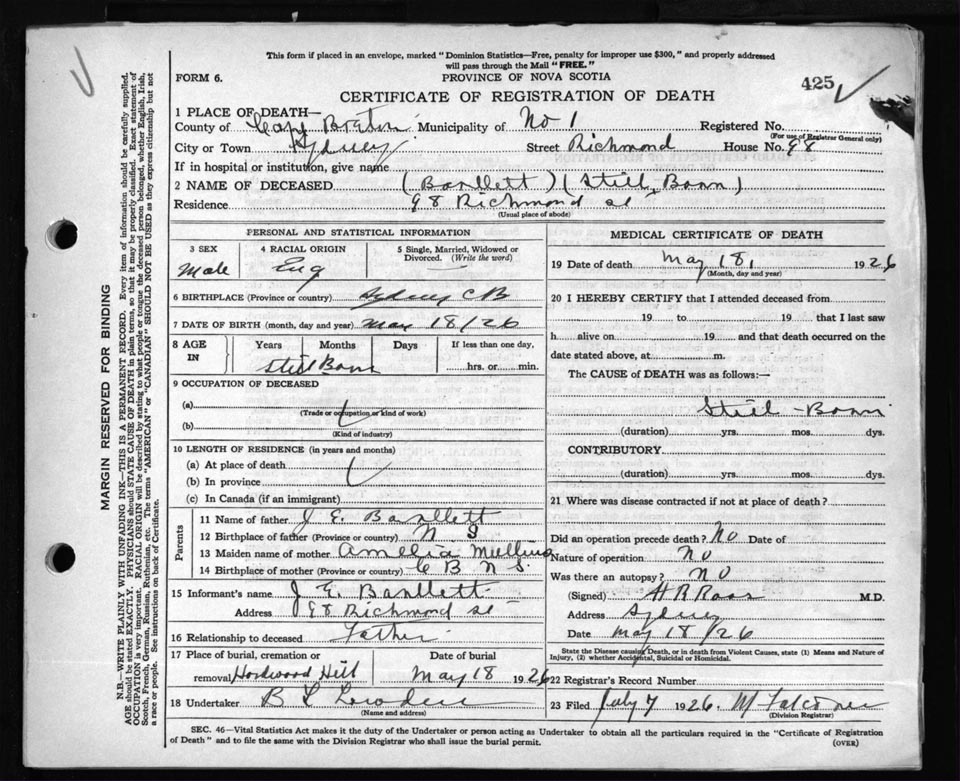 This form if placed in an envelope, marked "Dominion Statistics—Free, penalty for improper use $300," and properly addressed
will pass through the Mail "FREE."
FORM 6.
PROVINCE OF NOVA SCOTIA
425
CERTIFICATE OF REGISTRATION OF DEATH
1 PLACE OF DEATH—
County of Cape Breton Municipality of No 1 Registered No.
(For use of Registrar General only)
City or Town Sydney Street Richmond House No. 98
If in hospital or institution, give name
2 NAME OF DECEASED (Bartlett) (Still Born)
Residence 98 Richmond St
(Usual place of abode)
PERSONAL AND STATISTICAL INFORMATION
3 SEX
Male
4 RACIAL ORIGIN
Eng
5 Single, Married, Widowed or
Divorced. (Write the word)
6 BIRTHPLACE (Province or country) Sydney CB
7 DATE OF BIRTH (month, day and year) May 18/26
8 AGE
IN
Years Months Days If less than one day,
Still Born hrs. or min.
9 OCCUPATION OF DECEASED
(a)
(Trade or occupation or kind of work)
(b)
(Kind of industry)
10 LENGTH OF RESIDENCE (in years and months)
(a) At place of death
(b) In province
(c) In Canada (if an immigrant)
Parents
11 Name of father J E. Bartlett
12 Birthplace of father (Province or country) N S
13 Maiden name of mother Amelia Mullins
14 Birthplace of mother (Province or country) C B N S.
15 Informant's name J E. Bartlett
Address 98 Richmond St
16 Relationship to deceased Father
17 Place of burial, cremation or
removal Hardwood Hill
Date of burial
May 18 1926
18 Undertaker B L
(Name and address)
MEDICAL CERTIFICATE OF DEATH
19 Date of death May 18, 1926
(Month, day and year)
20 I HEREBY CERTIFY that I attended deceased from
19 to 19 that I last saw
h alive on 19 and that death occurred on the
date stated above, at m.
The CAUSE of DEATH was as follows:—
Still-Born
(duration) yrs. mos. dys.
CONTRIBUTORY
(duration) yrs. mos. dys.
21 Where was disease contracted if not at place of death?
Did an operation precede death? No Date of
Nature of operation No
Was there an autopsy? No
(Signed) H R Ross M.D.
Address Sydney
Date May 18/26
State the Disease causing Death, or in death from Violent Causes, state (1) Means and Nature of
Injury, (2) whether Accidental, Suicidal or Homicidal.
22 Registrar's Record Number
23 Filed July 7 1926 M Falconer
(Division Registrar)
SEC. 46—Vital Statistics Act makes it the duty of the Undertaker or person acting as Undertaker to obtain all the particulars required in the "Certificate of Registration
of Death" and to file the same with the Division Registrar who shall issue the burial permit.
(OVER)
MARGIN RESERVED FOR BINDING
N.B.—WRITE PLAINLY WITH UNFADING INK—THIS IS A PERMANENT RECORD. Every item of information should be carefully supplied.
AGE should be stated EXACTLY. PHYSICIANS should STATE CAUSE OF DEATH in plain terms, so that it may be properly classified. Exact statement of
OCCUPATION is very important. RACIAL ORIGIN will be described by stating to what people or tongue the deceased person belonged, whether English, Irish,
Scotch, French, German, Russian, Ruthenian, etc. The terms "AMERICAN" or "CANADIAN" SHOULD NOT BE USED as they express citizenship but not
a race or people. See instructions on back of Certificate.